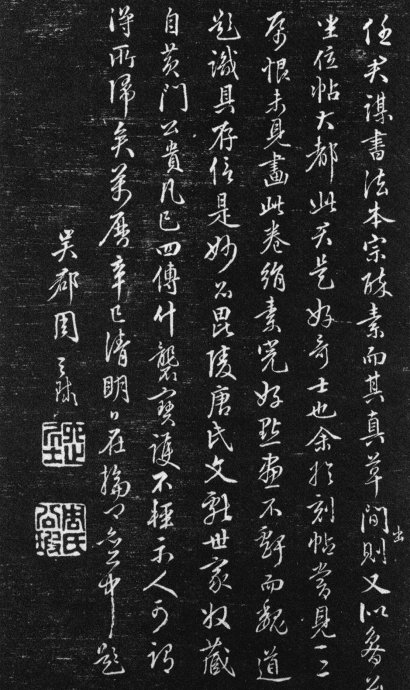 任君謀書法本宗醉素而其真草間出則又似魯
坐位帖大都此君是好奇士也余於刻帖嘗見一二
恨未見畫此卷絹素完好點畫不訛而魏道
題識具存信是妙品毘陵唐氏文獻世家收藏
自黃門公貴凡已四傳什襲寶護不輕示人可謂
得所歸矣萬曆辛巳清明日在中題
吳郡周天球
周氏公瑕